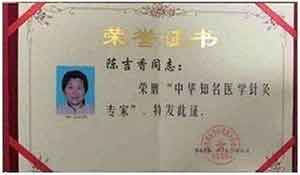 荣誉证书
陈吉秀同志：
荣册“中华知名医学针灸
专家”、特发此证。